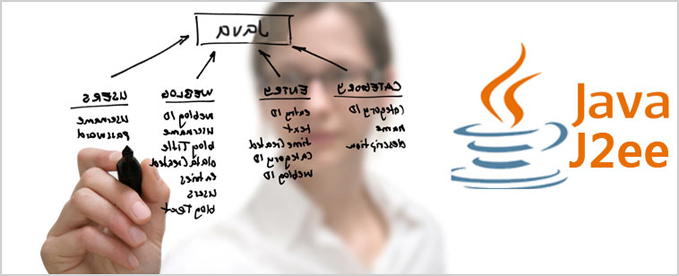 Java
USERS
username
password
WEBLOG
weblog ID
username
blogTitle
dateCreated
entries
users
blogText
ENTRY
entry ID
text
timeCreated
Category ID
Weblog ID
CATEGORY
Category ID
name
description
Java
J2ee